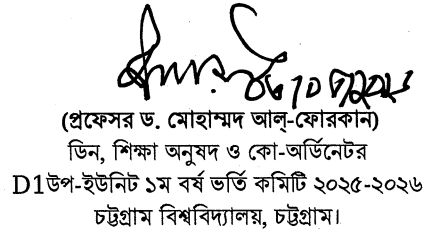 (প্রফেসর ড. মোহাম্মদ আল্-ফোরকান)
ডিন, শিক্ষা অনুষদ ও কো-অর্ডিনেটর
D1উপ-ইউনিট ১ম বর্ষ ভর্তি কমিটি ২০২৫-২০২৬
চট্টগ্রাম বিশ্ববিদ্যালয়, চট্টগ্রাম।